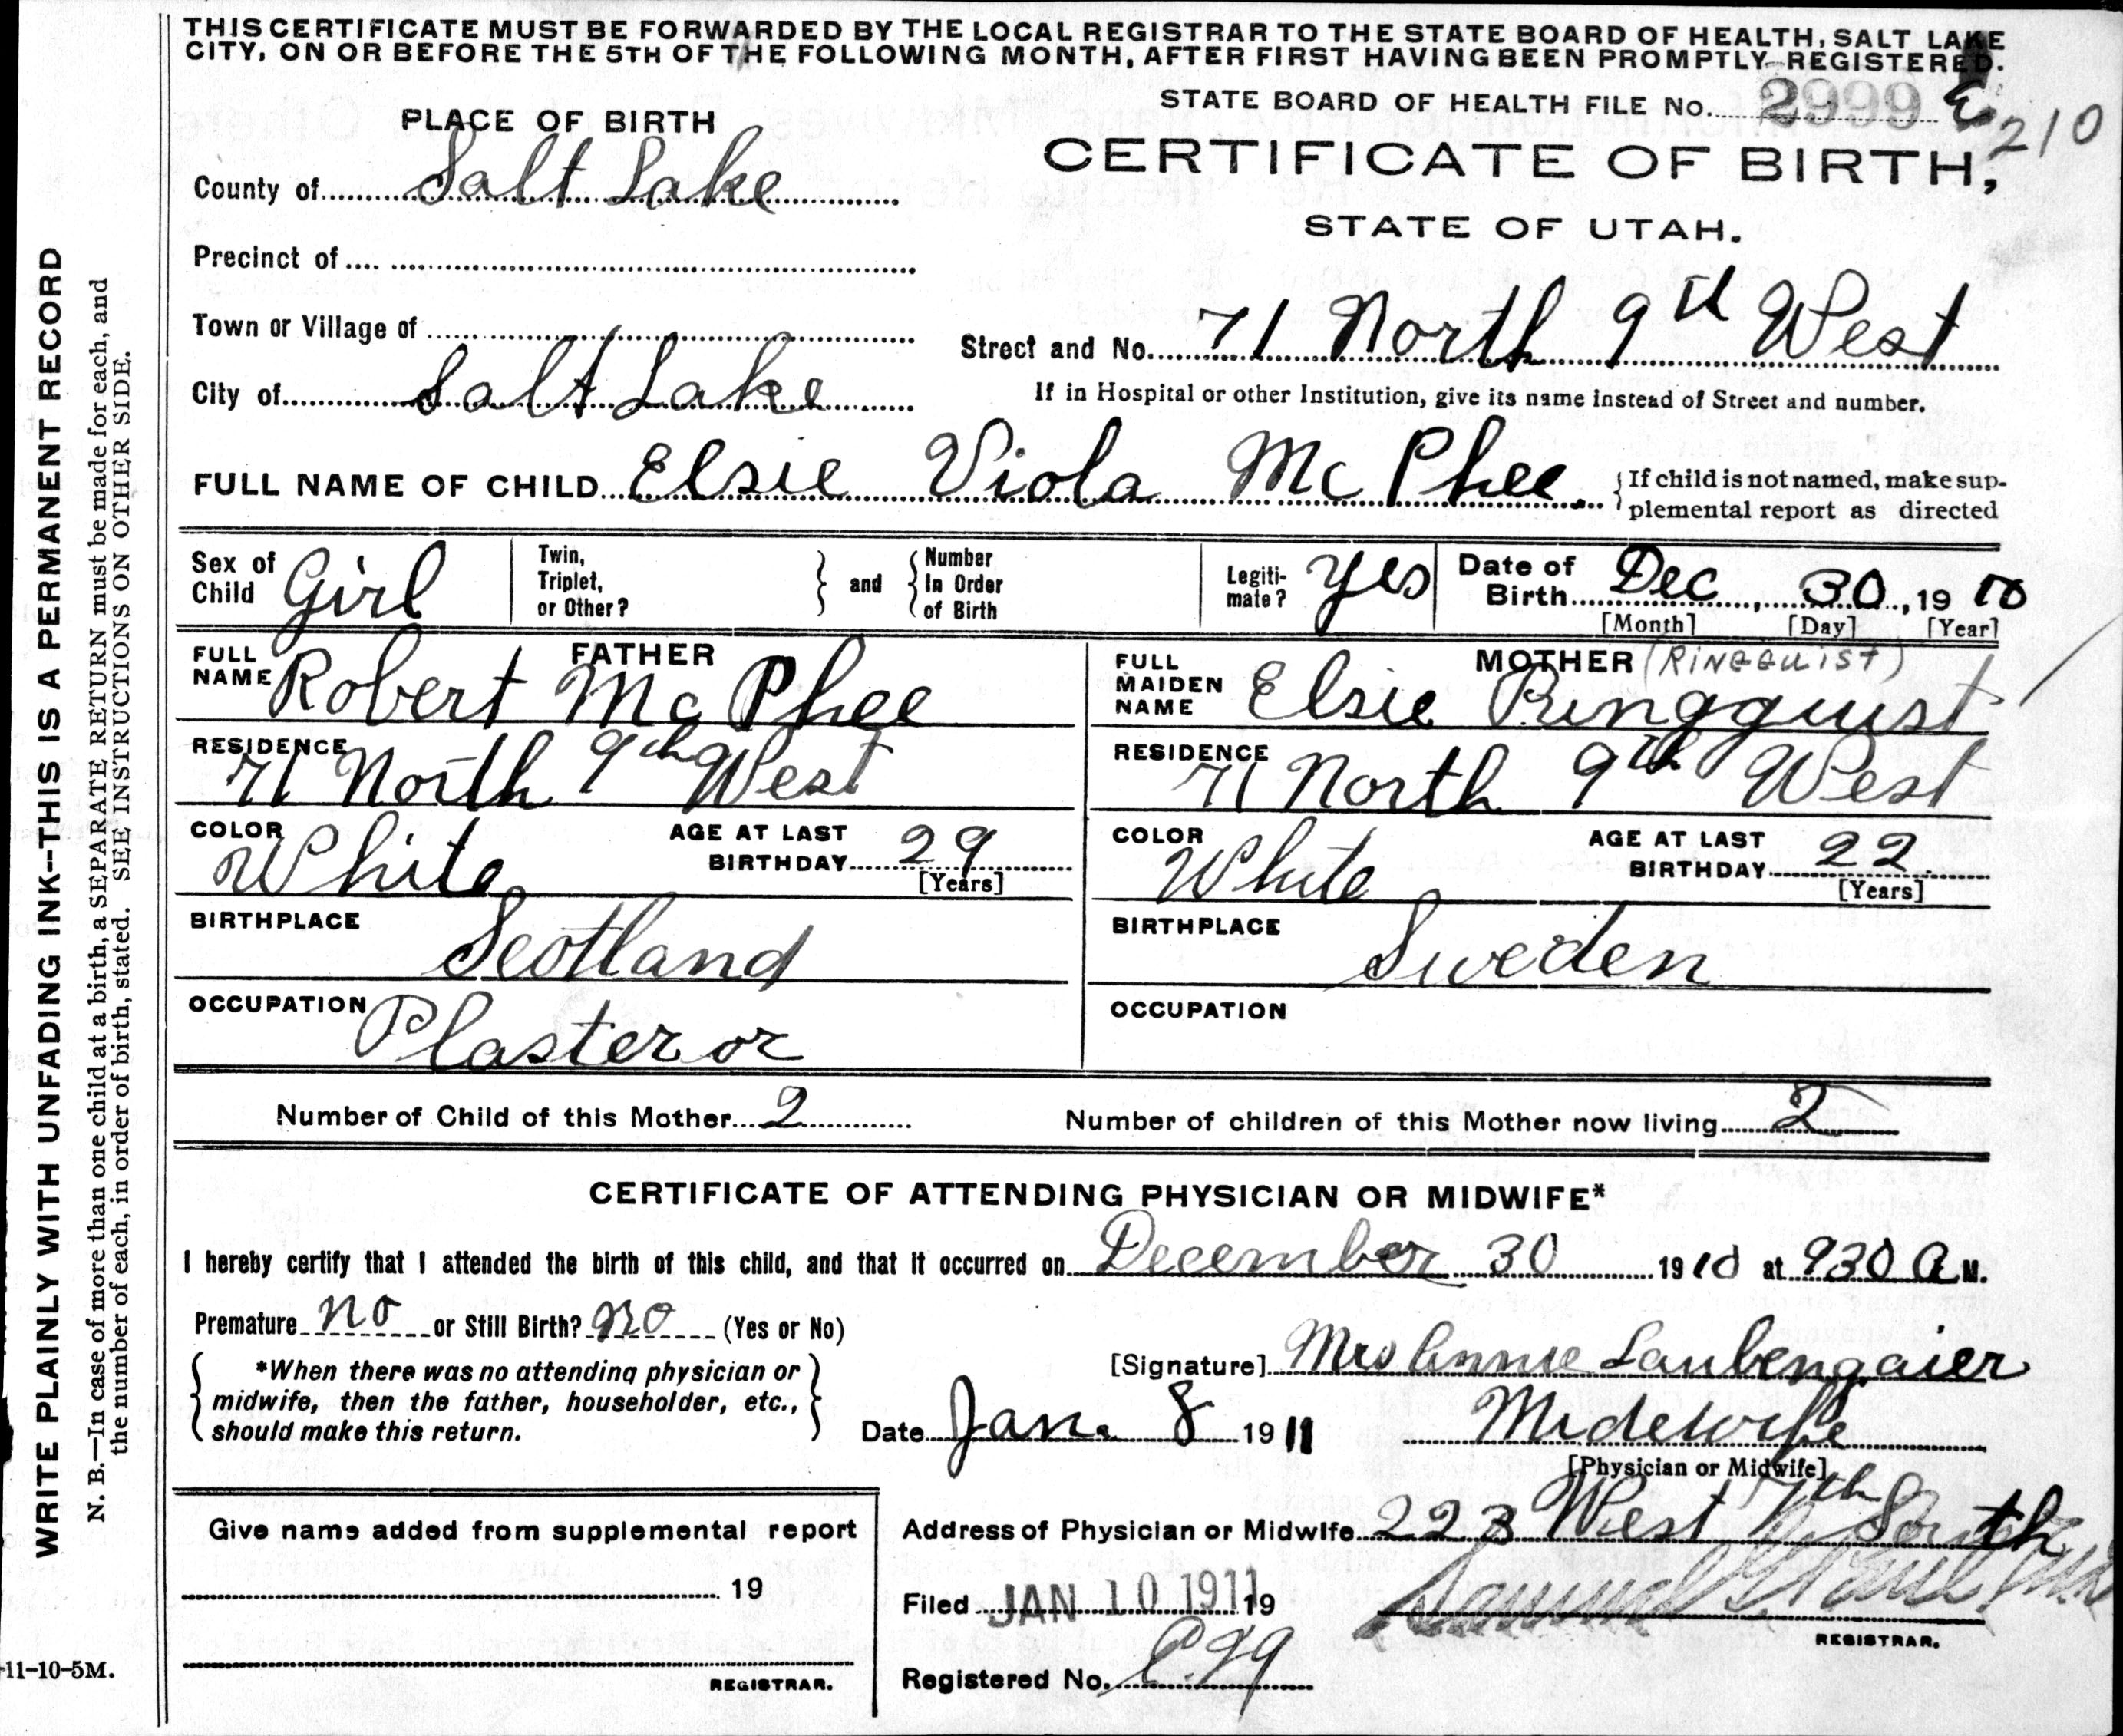 THIS CERTIFICATE MUST BE FORWARDED BY THE LOCAL REGISTRAR TO THE STATE BOARD OF HEALTH, SALT LAKE
CITY, ON OR BEFORE THE 5TH OF THE FOLLOWING MONTH, AFTER FIRST HAVING BEEN PROMPTLY REGISTERED.
STATE BOARD OF HEALTH FILE No. 2999
210
PLACE OF BIRTH
CERTIFICATE OF BIRTH,
STATE OF UTAH.
County of Salt Lake
Precinct of
Town or Village of
Street and No. 71 North 9th West
City of Salt Lake
If in Hospital or other Institution, give its name instead of Street and number.
FULL NAME OF CHILD Elsie Viola McPhee.
{If child is not named, make sup-
plemental report as directed
Sex of Child Girl
Twin, Triplet, or Other? } and { Number In Order of Birth
Legiti-mate? Yes
Date of Birth Dec 30, 1910
[Month] [Day] [Year]
FATHER
FULL NAME Robert McPhee
RESIDENCE 71 North 9th West
COLOR White
AGE AT LAST BIRTHDAY 29
[Years]
BIRTHPLACE Scotland
OCCUPATION Plasteror
MOTHER (RINGQUIST)
FULL MAIDEN NAME Elsie Ringquist
RESIDENCE 71 North 9th West
COLOR White
AGE AT LAST BIRTHDAY 22
[Years]
BIRTHPLACE Sweden
OCCUPATION
Number of Child of this Mother 2
Number of children of this Mother now living 2
CERTIFICATE OF ATTENDING PHYSICIAN OR MIDWIFE*
I hereby certify that I attended the birth of this child, and that it occurred on December 30 1910 at 930 A M.
Premature no or Still Birth? no (Yes or No)
{*When there was no attending physician or
midwife, then the father, householder, etc.,
should make this return.}
[Signature] Mrs Annie Laubengaier
Date Jan. 8 1911
Midewife
[Physician or Midwife]
Address of Physician or Midwife 223 West 7th South
Give name added from supplemental report
19
REGISTRAR.
Filed JAN 10 1911 19
Samuel G. Paul
REGISTRAR.
Registered No.
11-10-5M.
WRITE PLAINLY WITH UNFADING INK—THIS IS A PERMANENT RECORD
N. B.—In case of more than one child at a birth, a SEPARATE RETURN must be made for each, and
the number of each, in order of birth, stated. SEE INSTRUCTIONS ON OTHER SIDE.